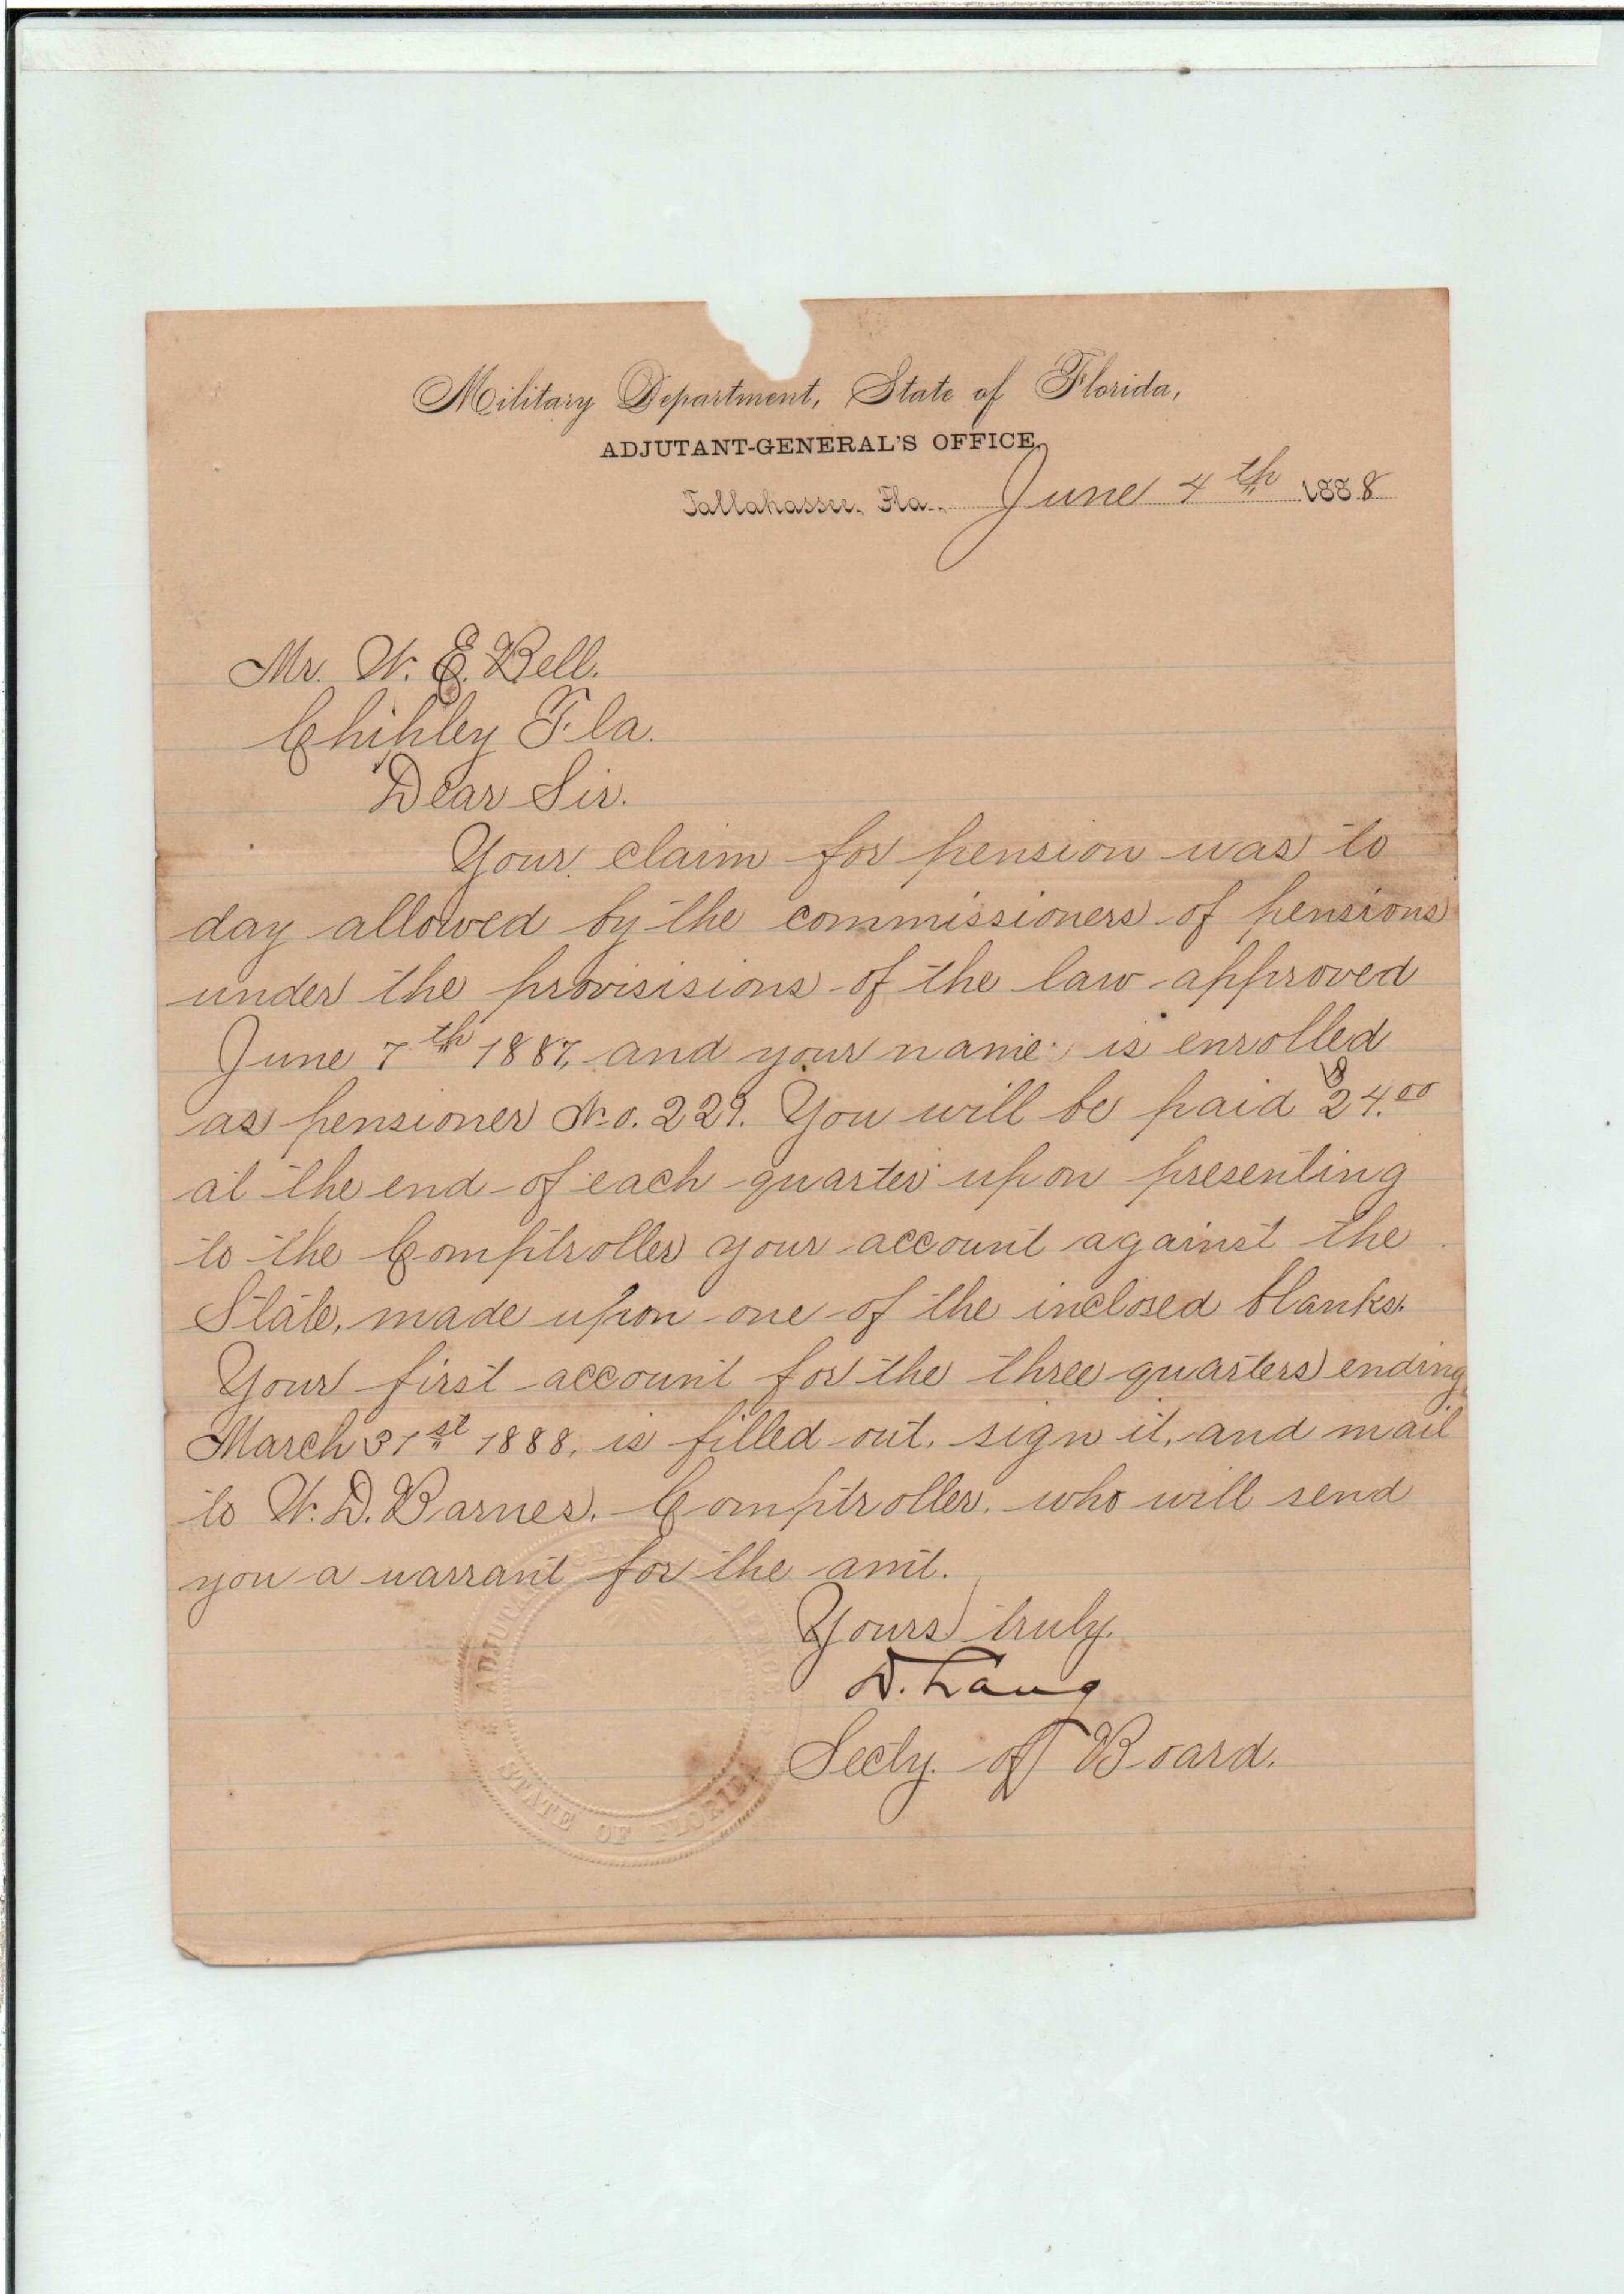 Military Department, State of Florida,
ADJUTANT-GENERAL'S OFFICE,
Tallahassee, Fla., June 4th 1888
Mr. W. E. Bell.
Chipley Fla.
Dear Sir.
Your claim for pension was to
day allowed by the commissioners of pensions
under the provisisions of the law approved
June 7th 1887, and your name is enrolled
as pensioner No. 229. You will be paid $24.00
at the end of each quarter upon presenting
to the Comptroller your account against the
State, made upon one of the inclosed blanks.
Your first account for the three quarters ending
March 31st 1888, is filled out, sign it, and mail
to W. D. Barnes, Comptroller, who will send
you a warrant for the amt.
Yours truly.
D. Lang
Secty. of Board.
STATE OF FLORIDA